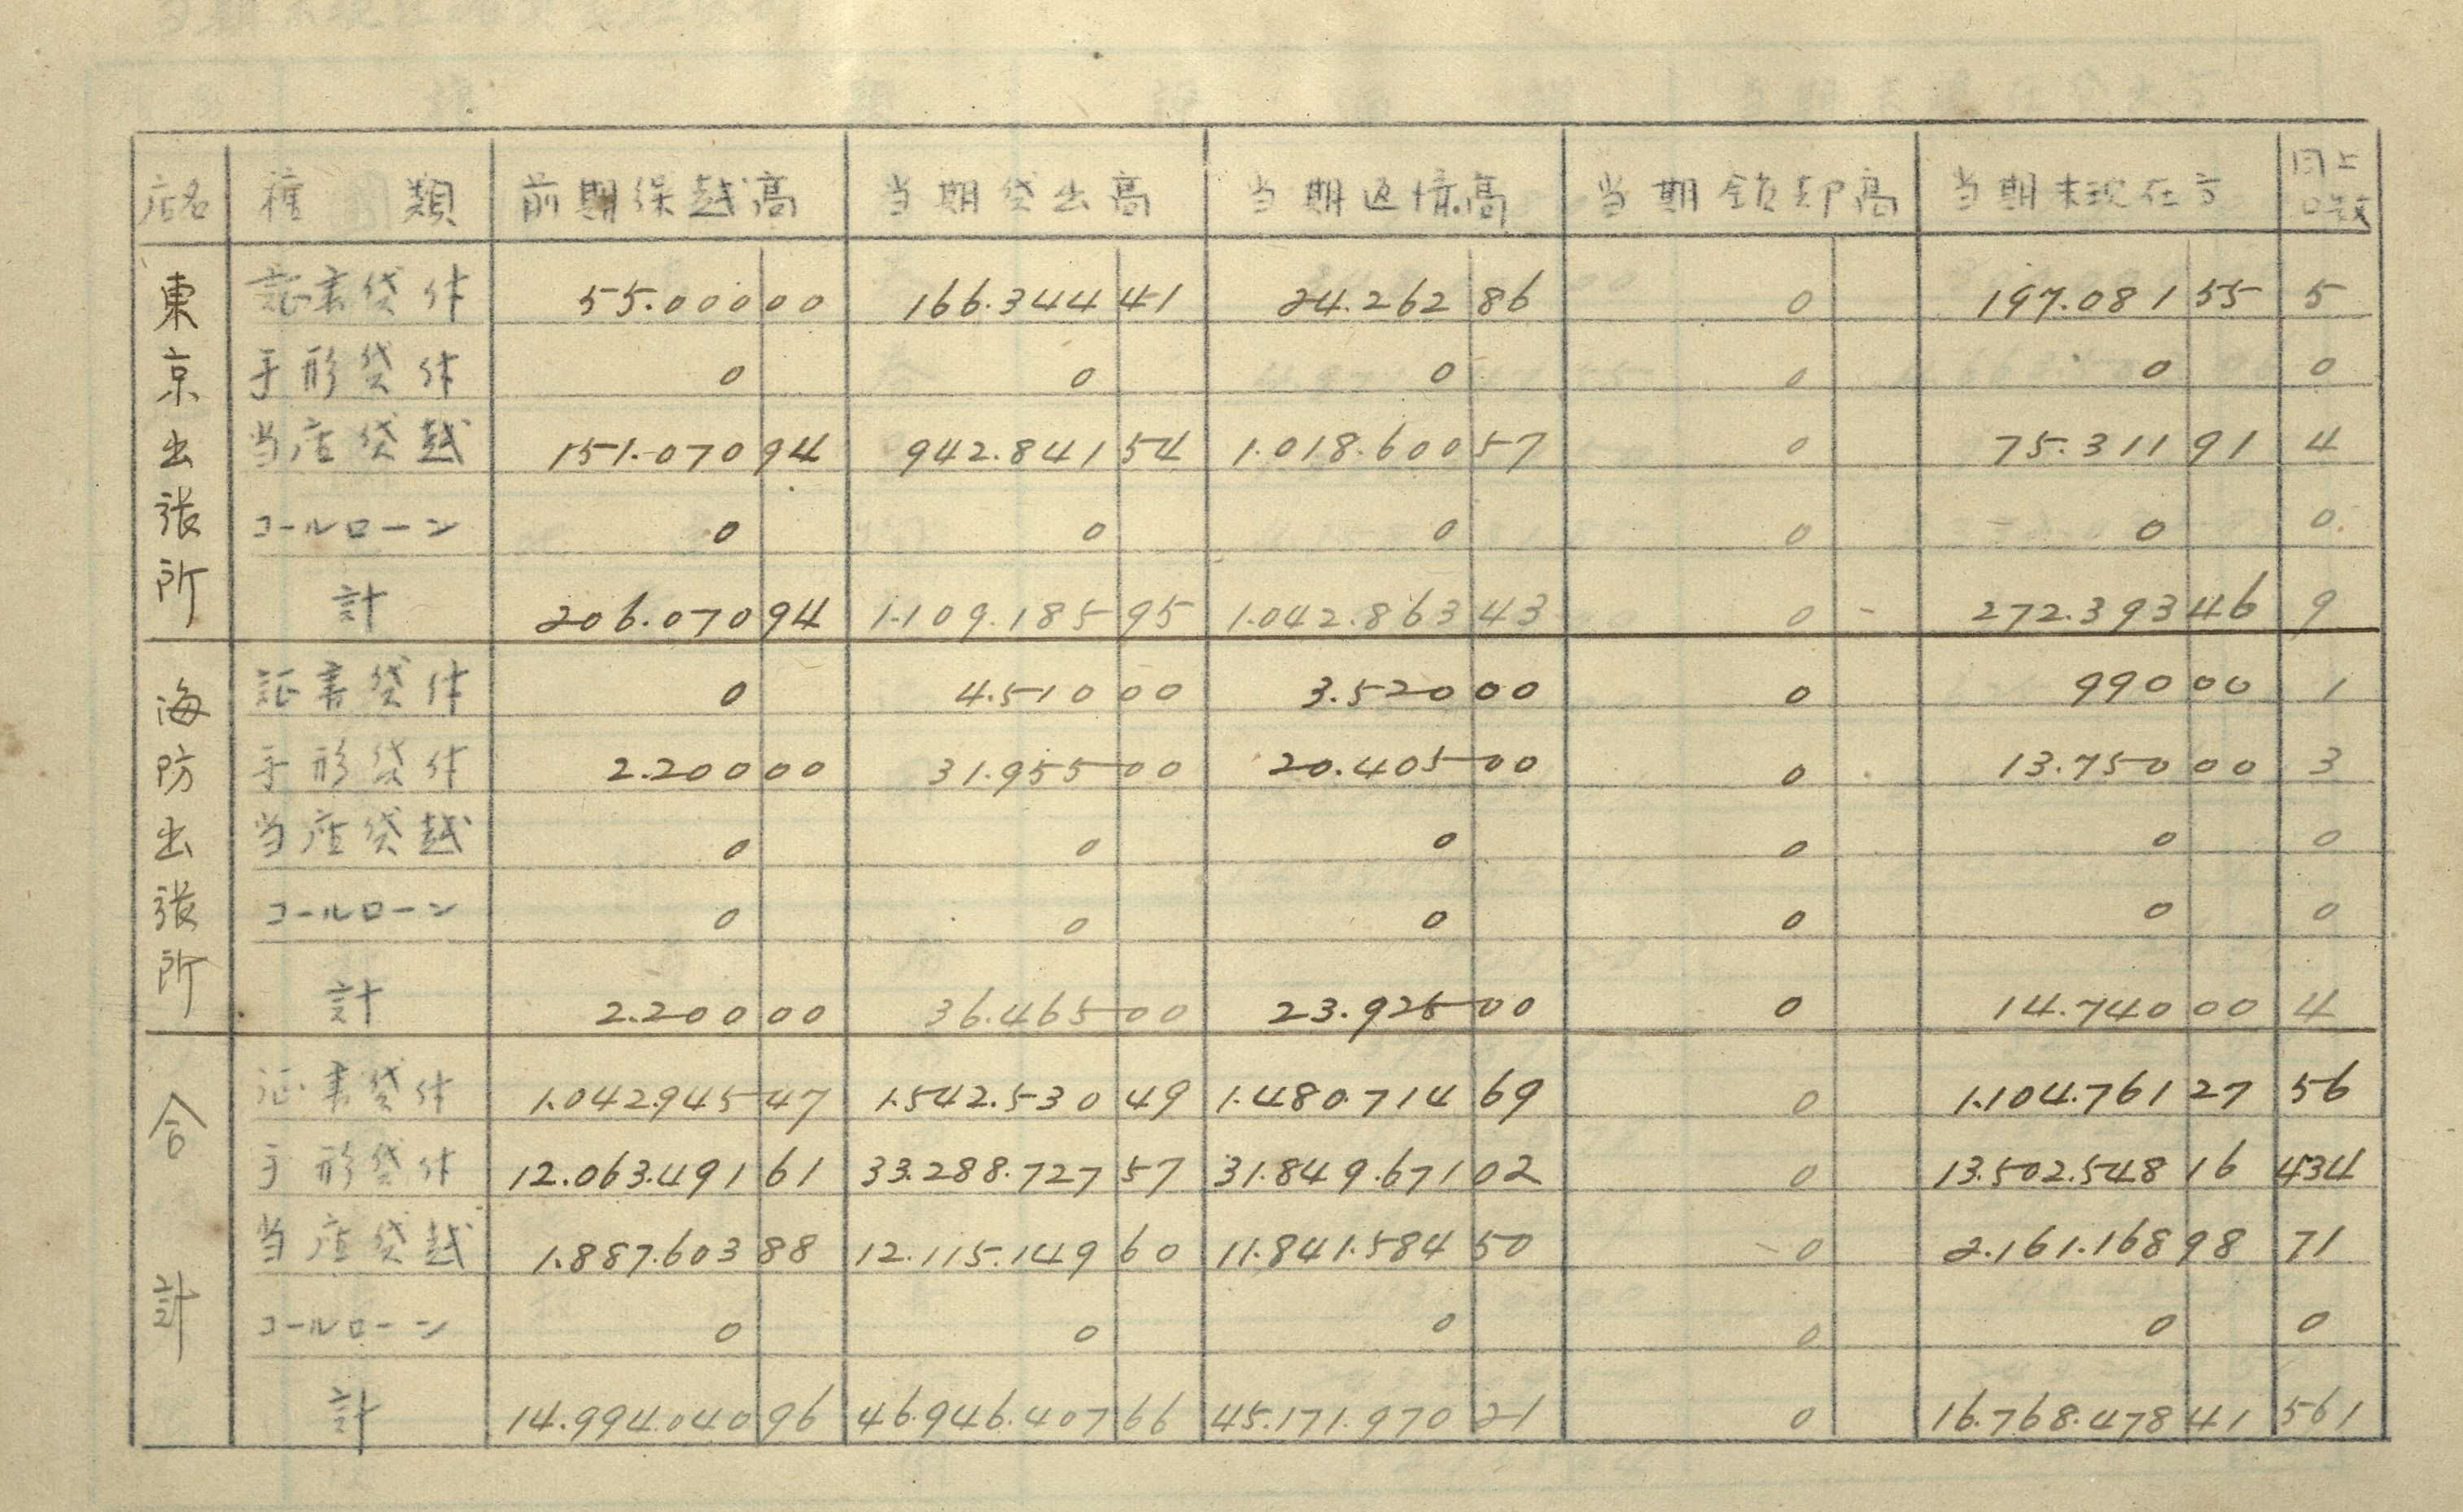 店名 種類 前期保越高 当期貸出高 当期返償高 当期償却高 当期末現在高 同上口数
東京出張所
証書貸付 55.000 00 166.344 41 24.262 86 0 197.081 55 5
手形貸付 0 0 0 0 0 0
当店貸越 151.070 94 942.841 54 1.018.600 57 0 75.311 91 4
コールローン 0 0 0 0 0 0
計 206.070 94 1.109.185 95 1.042.863 43 0 272.393 46 9
海防出張所
証書貸付 0 4.510 00 3.520 00 0 990 00 1
手形貸付 2.200 00 31.955 00 20.405 00 0 13.750 00 3
当店貸越 0 0 0 0 0 0
コールローン 0 0 0 0 0 0
計 2.200 00 36.465 00 23.925 00 0 14.740 00 4
合計
証書貸付 1.042.945 47 1.542.530 49 1.480.714 69 0 1.104.761 27 56
手形貸付 12.063.491 61 33.288.727 57 31.849.671 02 0 13.502.548 16 434
当店貸越 1.887.603 88 12.115.149 60 11.841.584 50 0 2.161.168 98 71
コールローン 0 0 0 0 0 0
計 14.994.040 96 46.946.407 66 45.171.970 21 0 16.768.478 41 561